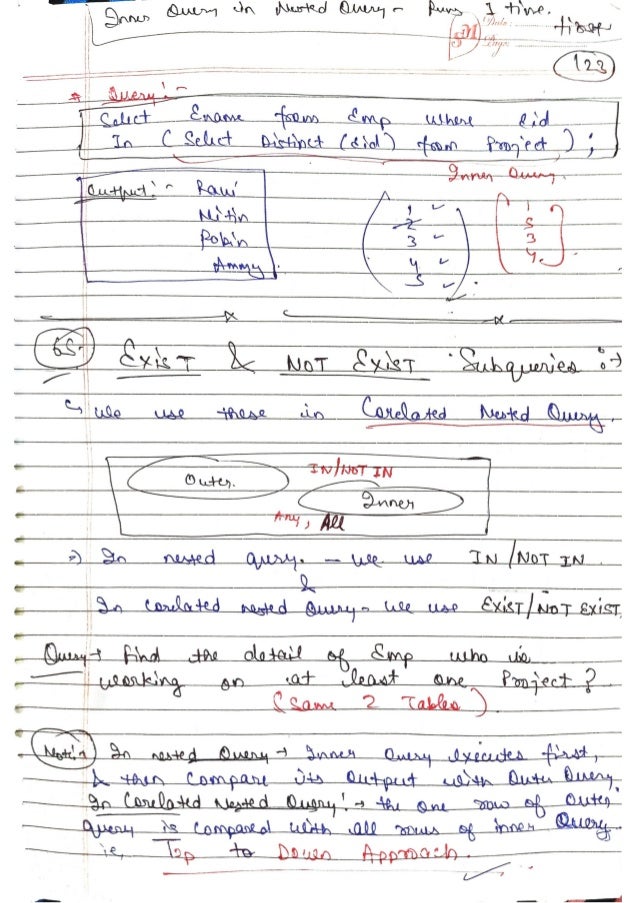 Inner Query in Nested Query - Runs 1 time.
Date:
Page:
123
* Query :-
Select Ename from Emp where Eid
In ( Select Distinct (eid) from Project ) ;
Inner Query
Output :- Ravi
Nitin
Robin
Ammy.
1 ✓
2
3 ✓
4 ✓
5 ✓
1
5
3
4
65. EXIST & NOT EXIST Subqueries :→
↳ We use these in Corelated Nested Query.
Outer.
IN/NOT IN
Inner
Any, All
⇒ In nested query. - we use IN / NOT IN
&
In Corelated nested Query - we use EXIST/NOT EXIST.
Query → Find the detail of Emp who is
working on at least one Project ?
(Same 2 Tables)
Note:→ In nested Query → Inner Query executes first,
& then compare its output with Outer Query
In Corelated Nested Query :→ the one row of Outer
query is compared with all rows of inner Query
ie, Top to Down Approach.